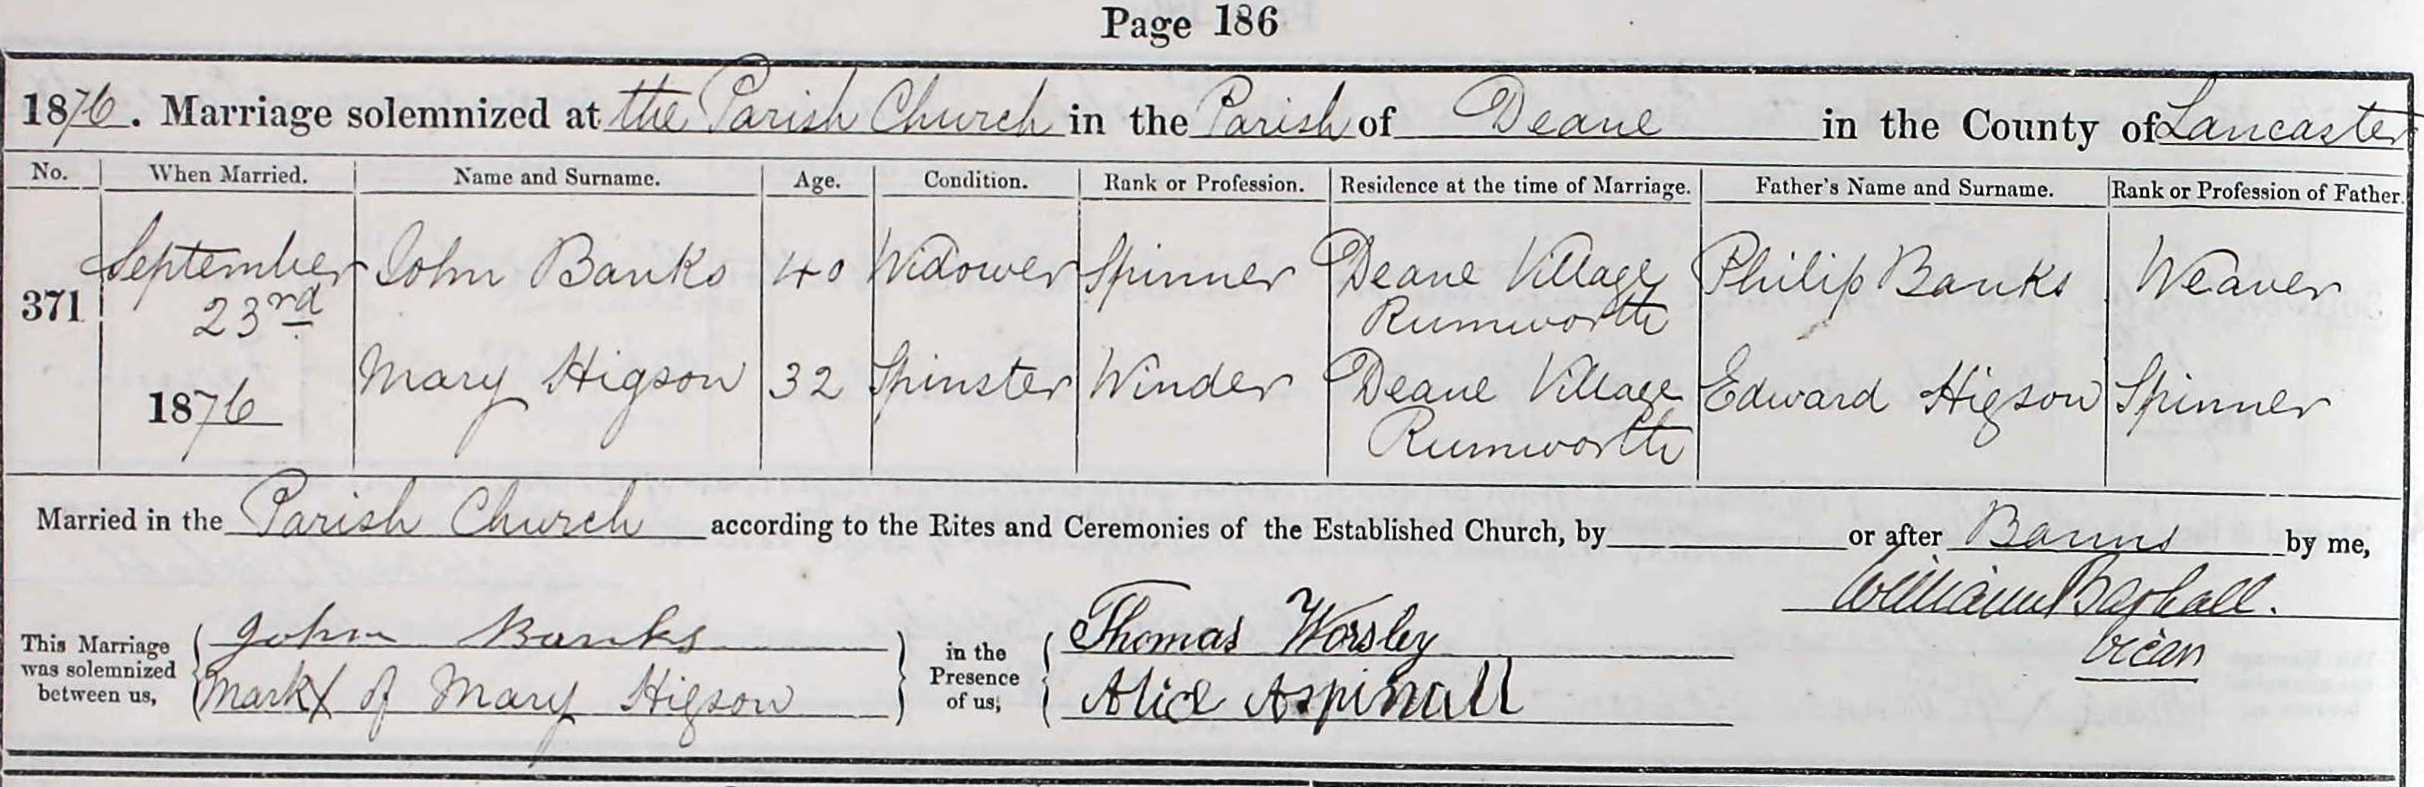 Page 186
1876. Marriage solemnized at the Parish Church in the Parish of Deane in the County of Lancaster
No. When Married. Name and Surname. Age. Condition. Rank or Profession. Residence at the time of Marriage. Father's Name and Surname. Rank or Profession of Father.
371 September 23rd 1876 John Banks 40 Widower Spinner Deane Village Rumworth Philip Banks Weaver
Mary Higson 32 Spinster Winder Deane Village Rumworth Edward Higson Spinner
Married in the Parish Church according to the Rites and Ceremonies of the Established Church, by or after Banns by me,
William Bashall.
Vicar
This Marriage was solemnized between us, John Banks in the Presence of us, Thomas Worsley
Mark X of Mary Higson Alice Aspinall